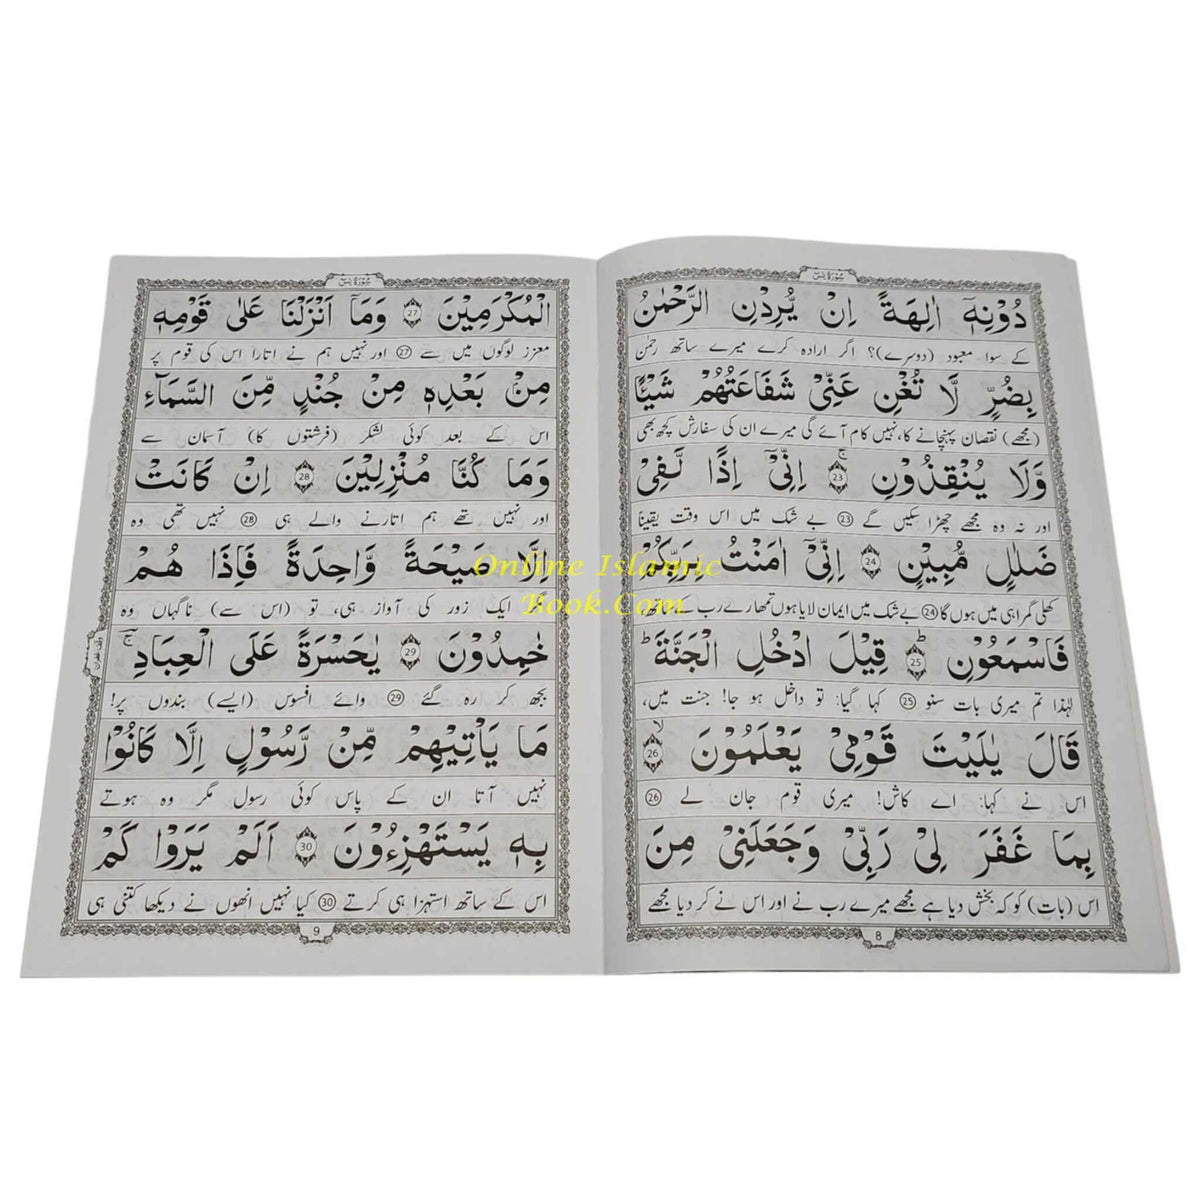 سورة يٰس
دُوْنِهٖٓ اٰلِهَةً اِنْ يُّرِدْنِ الرَّحْمٰنُ
کے سوا معبود (دوسرے)؟ اگر ارادہ کرے میرے ساتھ رحمٰن
بِضُرٍّ لَّا تُغْنِ عَنِّيْ شَفَاعَتُهُمْ شَيْـًٔا
(مجھے) نقصان پہنچانے کا، نہیں کام آئے گی میرے ان کی سفارش کچھ بھی
وَّلَا يُنْقِذُوْنِ ۚ 23 اِنِّيْٓ اِذًا لَّفِيْ
اور نہ وہ مجھے چھڑا سکیں گے 23 بے شک میں اس وقت یقیناً
ضَلٰلٍ مُّبِيْنٍ 24 اِنِّيْٓ اٰمَنْتُ بِرَبِّكُمْ
کھلی گمراہی میں ہوں گا 24 بے شک میں ایمان لایا ہوں تمھارے رب کے ساتھ،
فَاسْمَعُوْنِ ؕ 25 قِيْلَ ادْخُلِ الْجَنَّةَ ؕ
لہٰذا تم میری بات سنو 25 کہا گیا: تو داخل ہو جا! جنت میں،
قَالَ يٰلَيْتَ قَوْمِيْ يَعْلَمُوْنَ ۙ 26
اس نے کہا: اے کاش! میری قوم جان لے 26
بِمَا غَفَرَ لِيْ رَبِّيْ وَجَعَلَنِيْ مِنَ
اس (بات) کو کہ بخش دیا ہے مجھے میرے رب نے اور اس نے کر دیا مجھے
8
سورة يٰس
الْمُكْرَمِيْنَ 27 وَمَآ اَنْزَلْنَا عَلٰى قَوْمِهٖ
معزز لوگوں میں سے 27 اور نہیں ہم نے اتارا اس کی قوم پر
مِنْۢ بَعْدِهٖ مِنْ جُنْدٍ مِّنَ السَّمَآءِ
اس کے بعد کوئی لشکر (فرشتوں کا) آسمان سے
وَمَا كُنَّا مُنْزِلِيْنَ 28 اِنْ كَانَتْ
اور نہیں تھے ہم اتارنے والے ہی 28 نہیں تھی وہ
اِلَّا صَيْحَةً وَّاحِدَةً فَاِذَا هُمْ
مگر ایک زور کی آواز ہی، تو (اس سے) ناگہاں وہ
خٰمِدُوْنَ 29 يٰحَسْرَةً عَلَى الْعِبَادِ ۚ
بجھ کر رہ گئے 29 وائے افسوس (ایسے) بندوں پر!
مَا يَاْتِيْهِمْ مِّنْ رَّسُوْلٍ اِلَّا كَانُوْا
نہیں آتا ان کے پاس کوئی رسول مگر وہ ہوتے
بِهٖ يَسْتَهْزِءُوْنَ 30 اَلَمْ يَرَوْا كَمْ
اس کے ساتھ استہزا ہی کرتے 30 کیا نہیں انھوں نے دیکھا کتنی ہی
9
Online Islamic
Book.Com